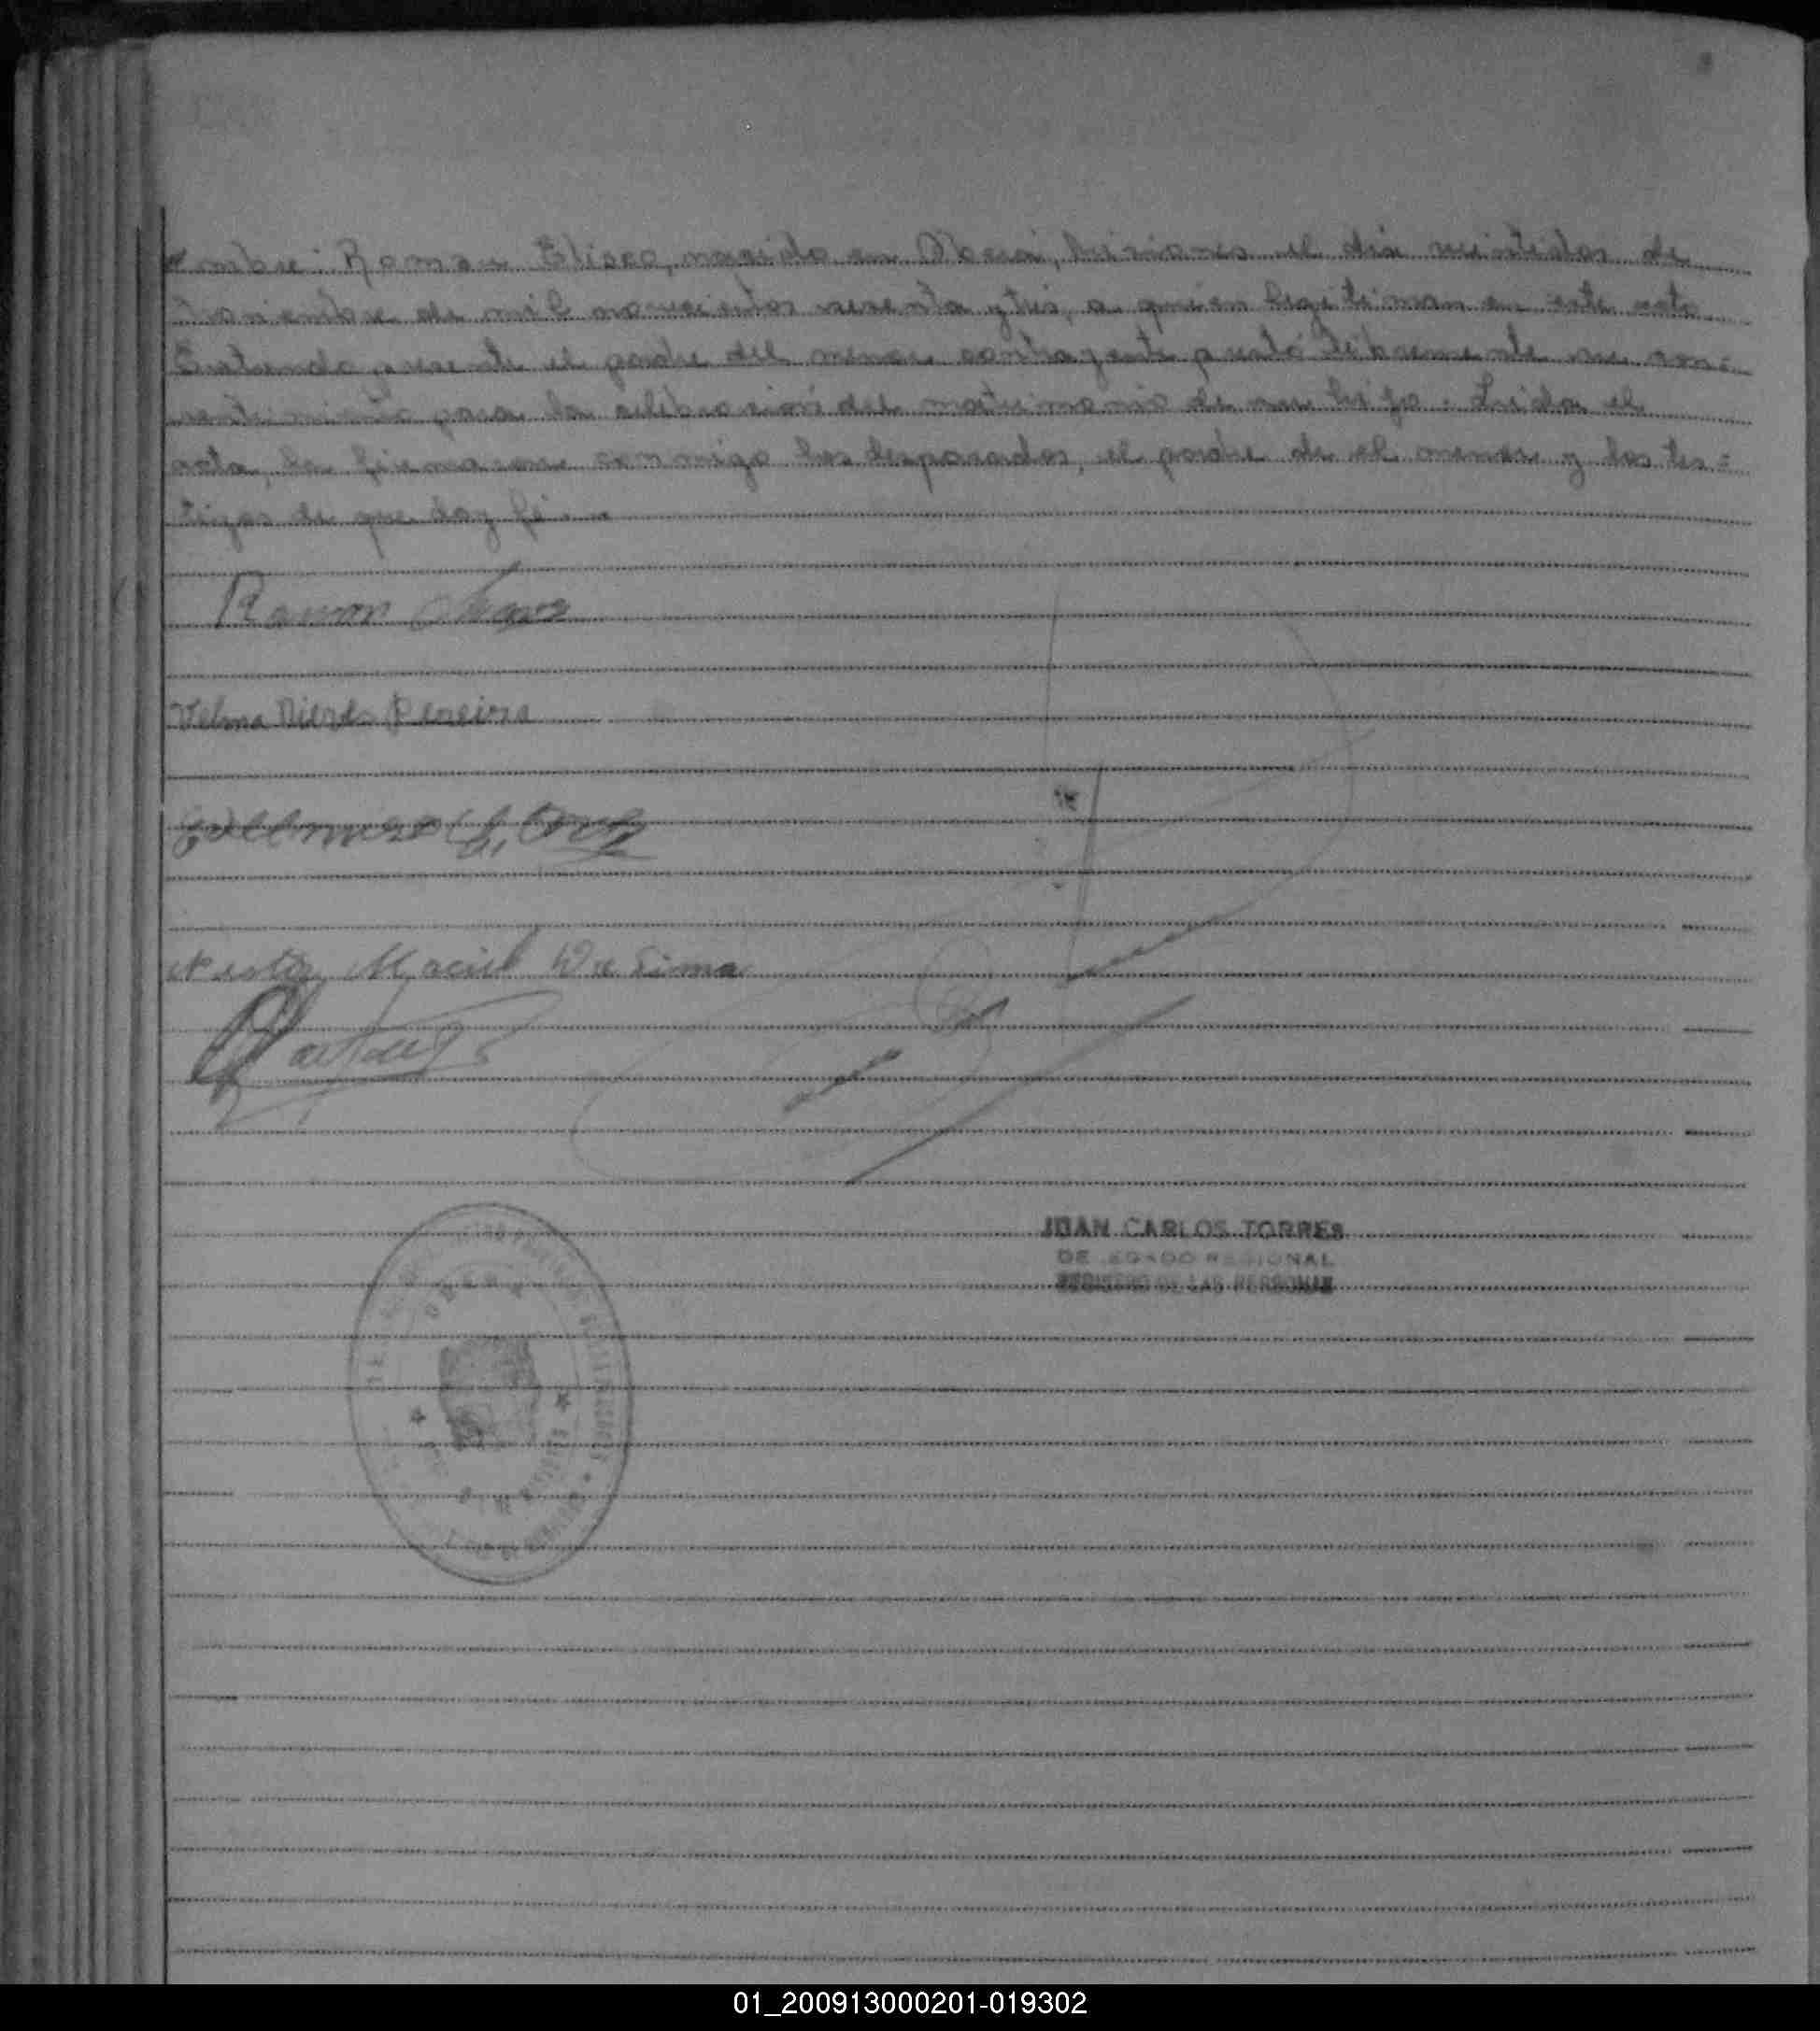 nombre: Ramon Eliseo, nacido en Oberá, Misiones el día veintidos de
noviembre de mil novecientos sesenta y tres, a quien legitiman en este acto.
Estando presente el padre del menor contrayente prestó libremente su con=
sentimiento para la celebración del matrimonio de su hijo. Leída el
acta, la firmaron conmigo los desposados, el padre de el menor y los tes=
tigos de que doy fé.
Ramon
Velma Pereira
Nestor Maciel Da Lima
JUAN CARLOS TORRES
DELEGADO REGIONAL
REGISTRO DE LAS PERSONAS
01_200913000201-019302